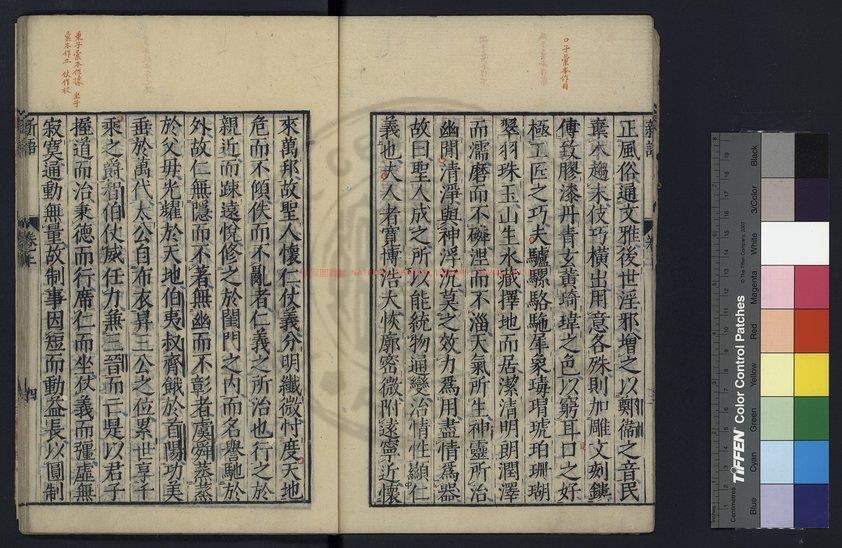 口子彙本作目
正風俗通文雅後世淫邪增之以鄭衞之音民
棄本趨末伎巧橫出用意各殊則加雕文刻鏤
傅致膠漆丹青玄黃琦瑋之色以窮耳口之好
極工匠之巧夫驢騾駱駞犀象瑇瑁琥珀珊瑚
翠羽珠玉山生水藏擇地而居潔清明朗潤澤
而濡磨而不磷涅而不淄天氣所生神靈所治
幽閒清淨與神浮沉莫之效力爲用盡情爲器
故曰聖人成之所以能統物通變治情性顯仁
義也夫人者寬博浩大恢廓密微附遠寧近懷
來萬邦故聖人懷仁仗義分明纖微忖度天地
危而不傾佚而不亂者仁義之所治也行之於
親近而疎遠悅修之於閨門之內而名譽馳於
外故仁無隱而不著無幽而不彰者虞舜蒸蒸
於父母光耀於天地伯夷叔齊餓於首陽功美
垂於萬代太公自布衣昇三公之位累世享千
乘之爵智伯仗威任力兼三晉而亡是以君子
握道而治秉德而行席仁而坐仗義而彊虛無
寂寞通動無量故制事因短而動益長以圓制
新語
四
TIFFEN Color Control Patches
© The Tiffen Company, 2007
Centimetres
Blue
Cyan
Green
Yellow
Red
Magenta
White
3/Color
Black